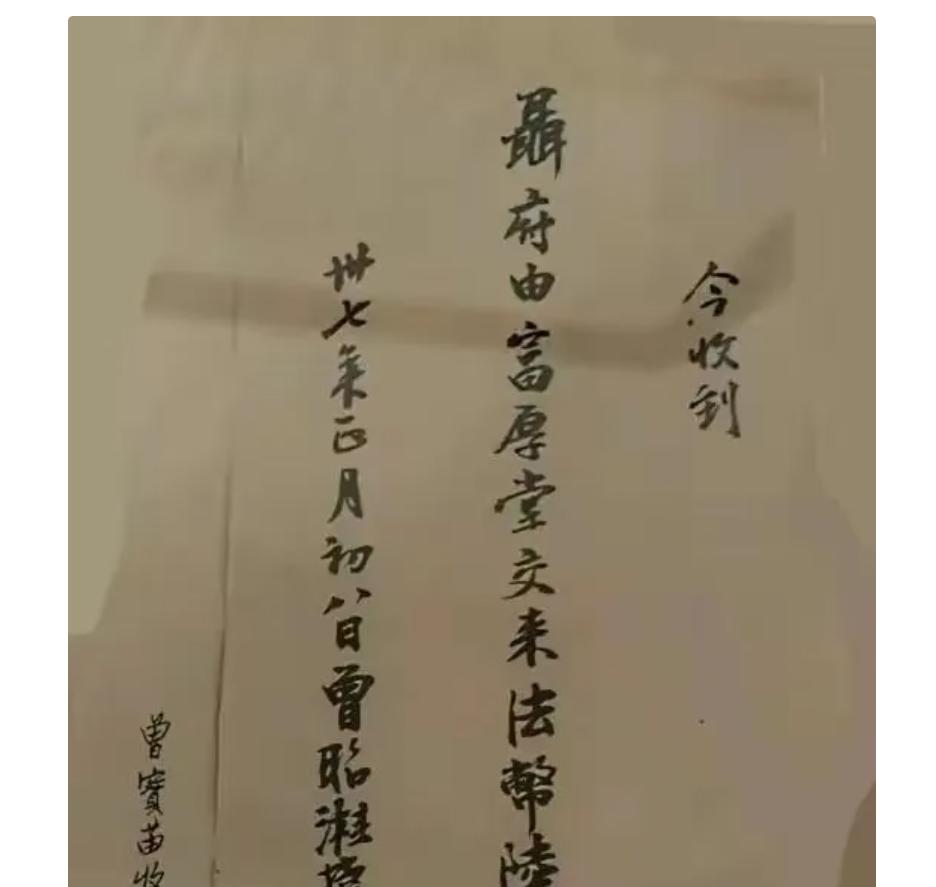 今收到
聶府由富厚堂交来法幣陸
卅七年正月初八日曾昭
曾寶苗收